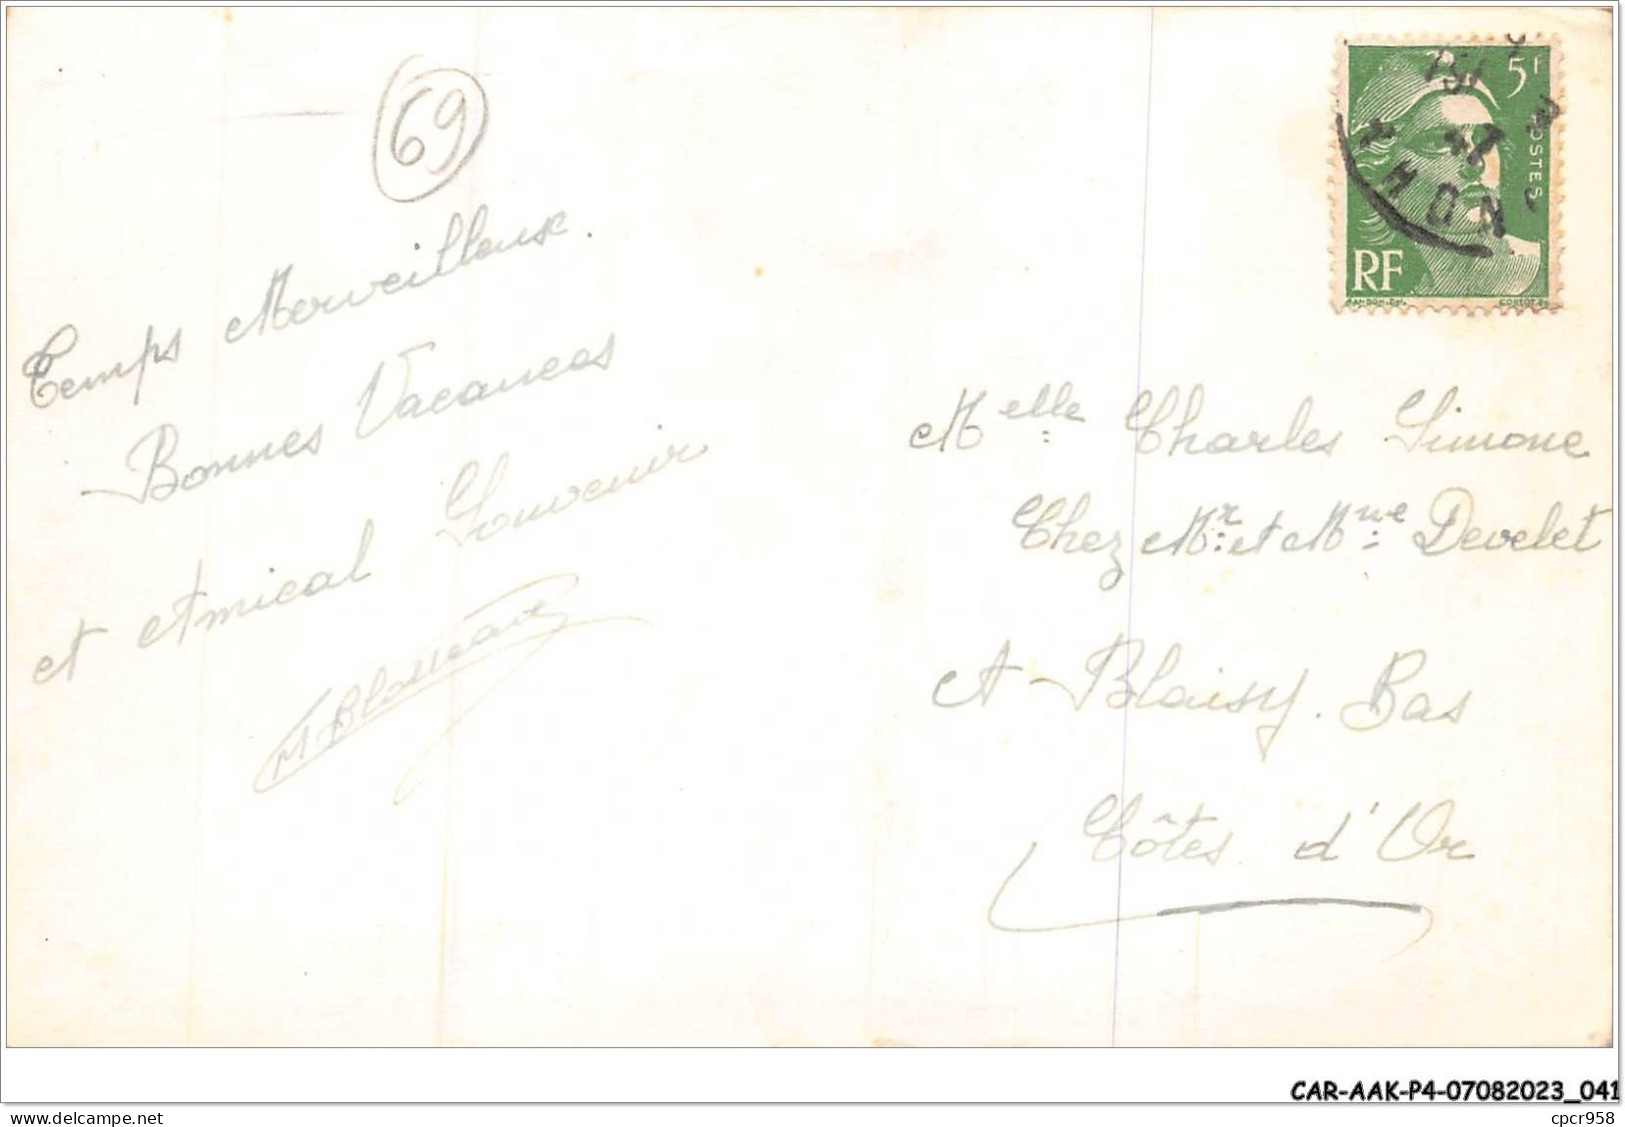 69
Temps Merveilleux.
Bonnes Vacances
et Amical Souvenir
5F
POSTES
RHON
RF
GANDON
CORTOT
Melle Charles Simone
Chez Mr et Mme Develet
A - Blaisy. Bas
Côtes d'Or
CAR-AAK-P4-07082023_041
www.delcampe.net
cpcr958